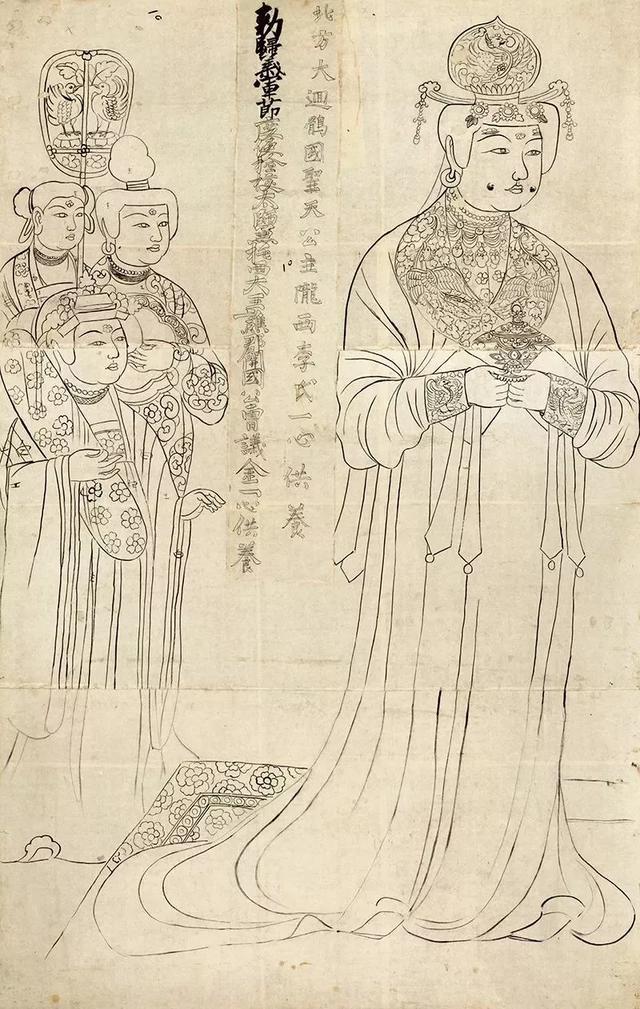 北方大迴鶻國聖天公主隴西李氏一心供養
勅歸義軍節度使檢校太師兼托西大王譙郡開國公曹議金一心供養